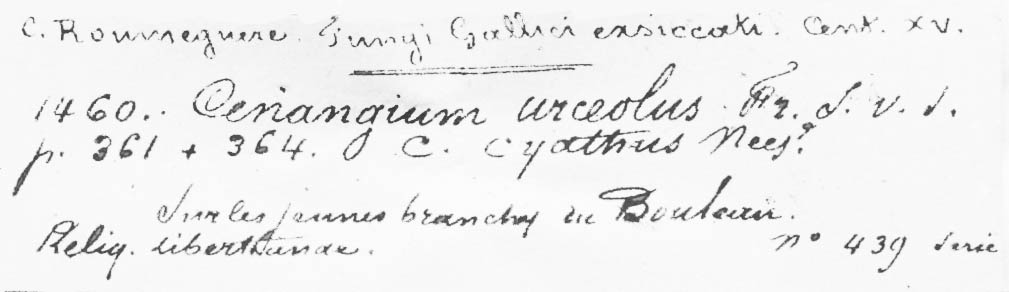 C. Roumeguere. Fungi Gallici exsiccati. Cent. XV.
1460. Cenangium urceolus Fr. S. V. S.
p. 361 + 364. C. Cyathus Nees?
Sur les jeunes branches du Bouleau.
Reliq. Libertianae. n° 439 Serie